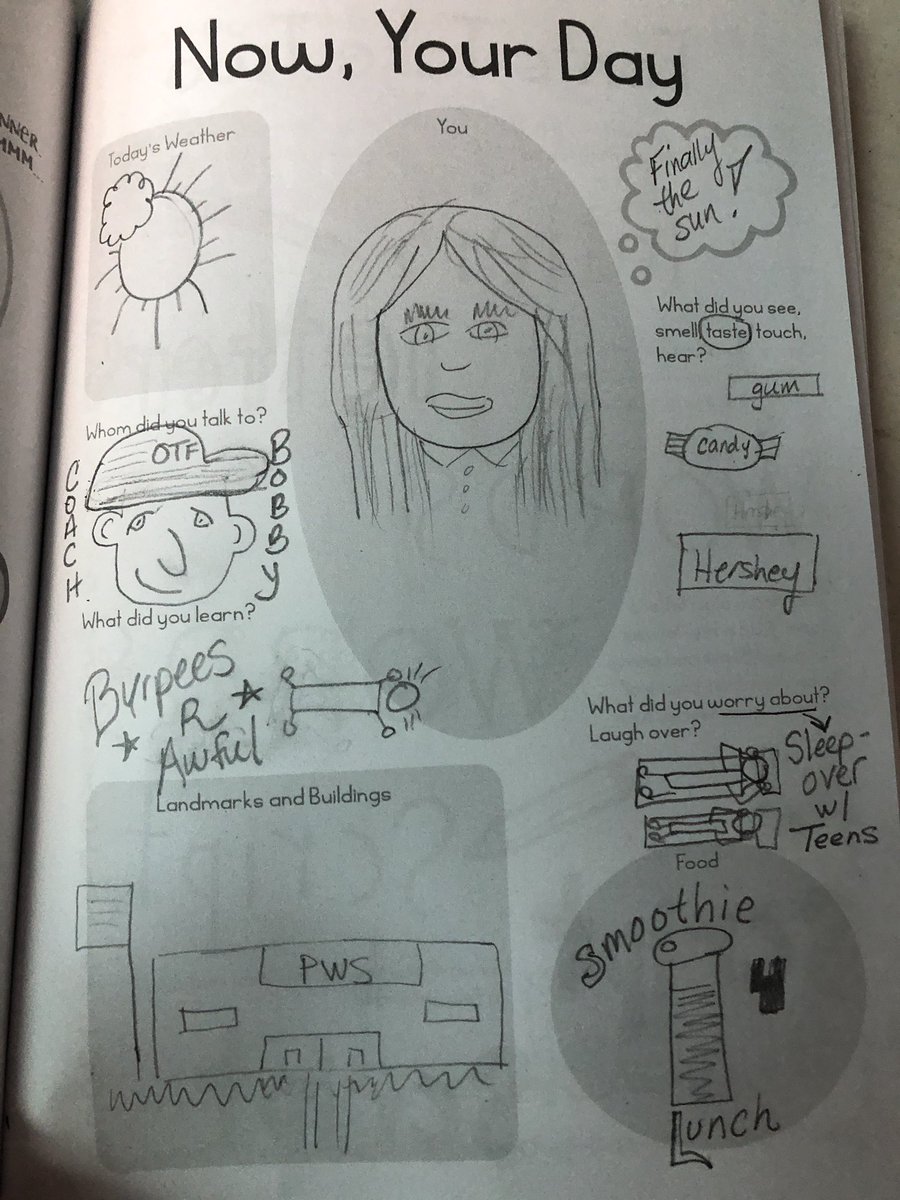 Now, Your Day
NNER
MMM...
Today's Weather
You
Finally
the
sun!
What did you see,
smell taste touch,
hear?
gum
candy
Hershey
Whom did you talk to?
OTF
COACH
BOBBY
What did you learn?
Burpees
R
Awful
What did you worry about?
Laugh over?
Sleep-
over
w/
Teens
Landmarks and Buildings
PWS
Food
Smoothie
4
Lunch